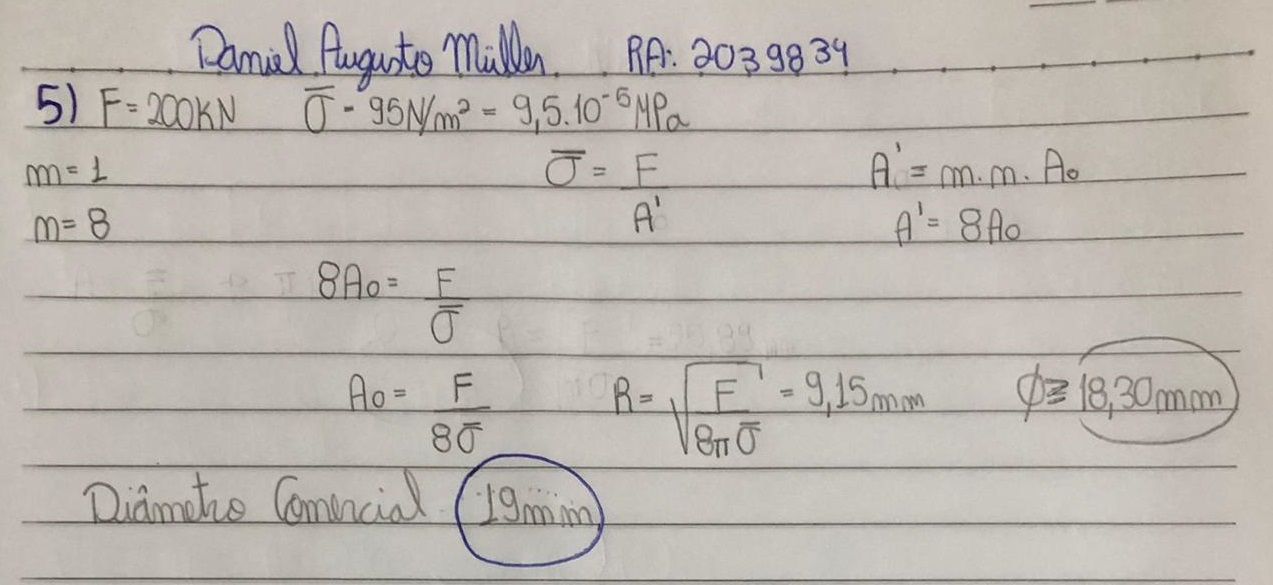 Daniel Augusto Müller RA: 2039834
5) F=200KN σ̅ - 95N/m² = 9,5.10⁻⁵MPa
m=1 σ̅ = F/A' A' = m.m.A₀
m=8 A' = 8A₀
8A₀ = F/σ̅
A₀ = F/8σ̅ R = √(F/8πσ̅) = 9,15mm ϕ≥18,30mm
Diâmetro Comercial 19mm